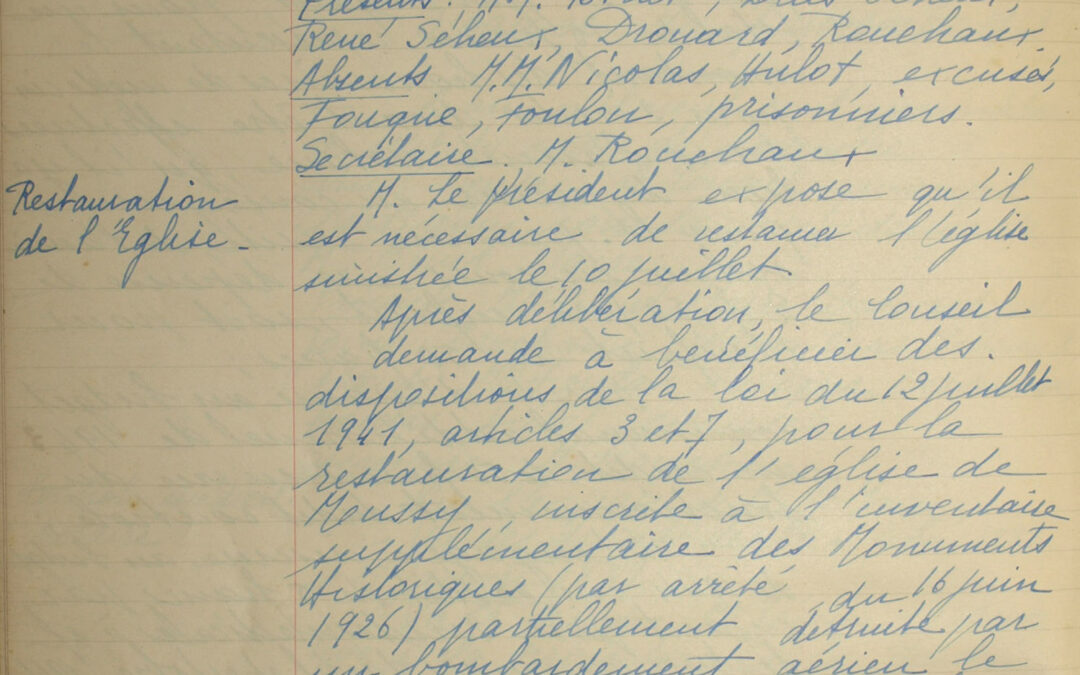 Présents. M.M.
René Séheux, Drouard, Rouchaux.
Absents M.M. Nicolas, Hulot, excusés,
Fouque, Foulon, prisonniers.
Secrétaire. M. Rouchaux
Restauration
de l'Eglise -
M. le président expose qu'il
est nécessaire de restaurer l'église
sinistrée le 10 juillet.
Après délibération, le Conseil
demande à bénéficier des
dispositions de la loi du 12 juillet
1941, articles 3 et 7, pour la
restauration de l'église de
Moussy, inscrite à l'inventaire
supplémentaire des Monuments
Historiques (par arrêté du 16 juin
1926) partiellement détruite par
un bombardement aérien le